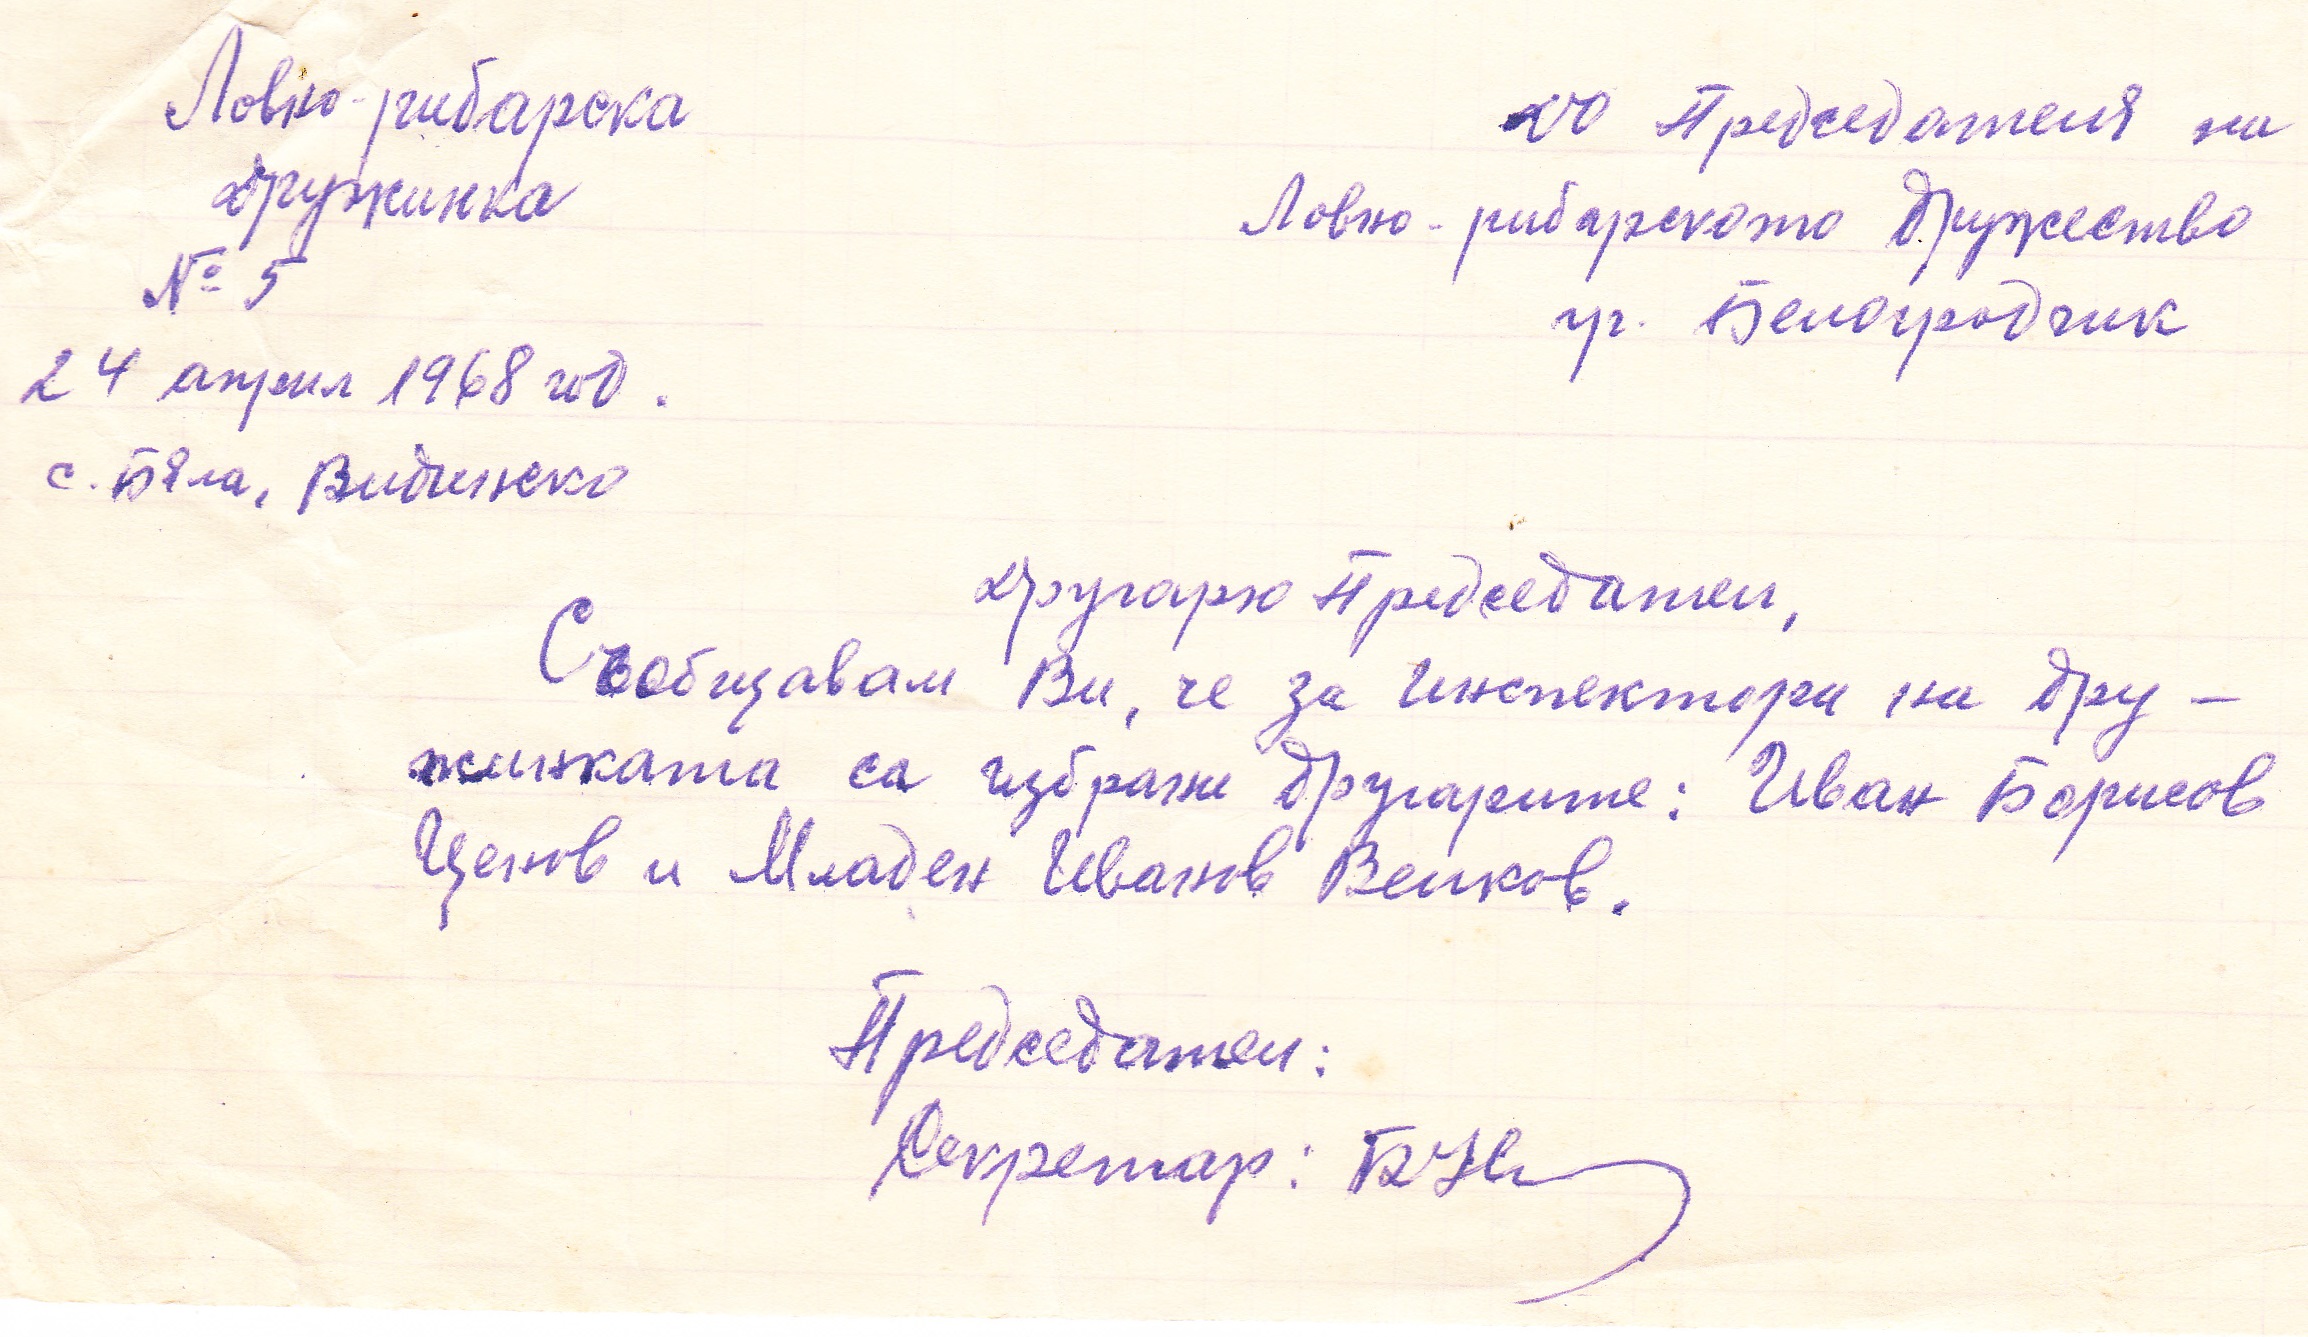 Ловно-рибарска
дружинка
№ 5
24 април 1968 год.
с. Бяла, Видинско
До Председателя на
Ловно-рибарското Дружество
гр. Белоградчик
Другарю Председател,
Съобщавам Ви, че за инспектори на дру-
жинката са избрани другарите: Иван Борисов
Ценов и Младен Иванов Велков.
Председател:
Секретар: